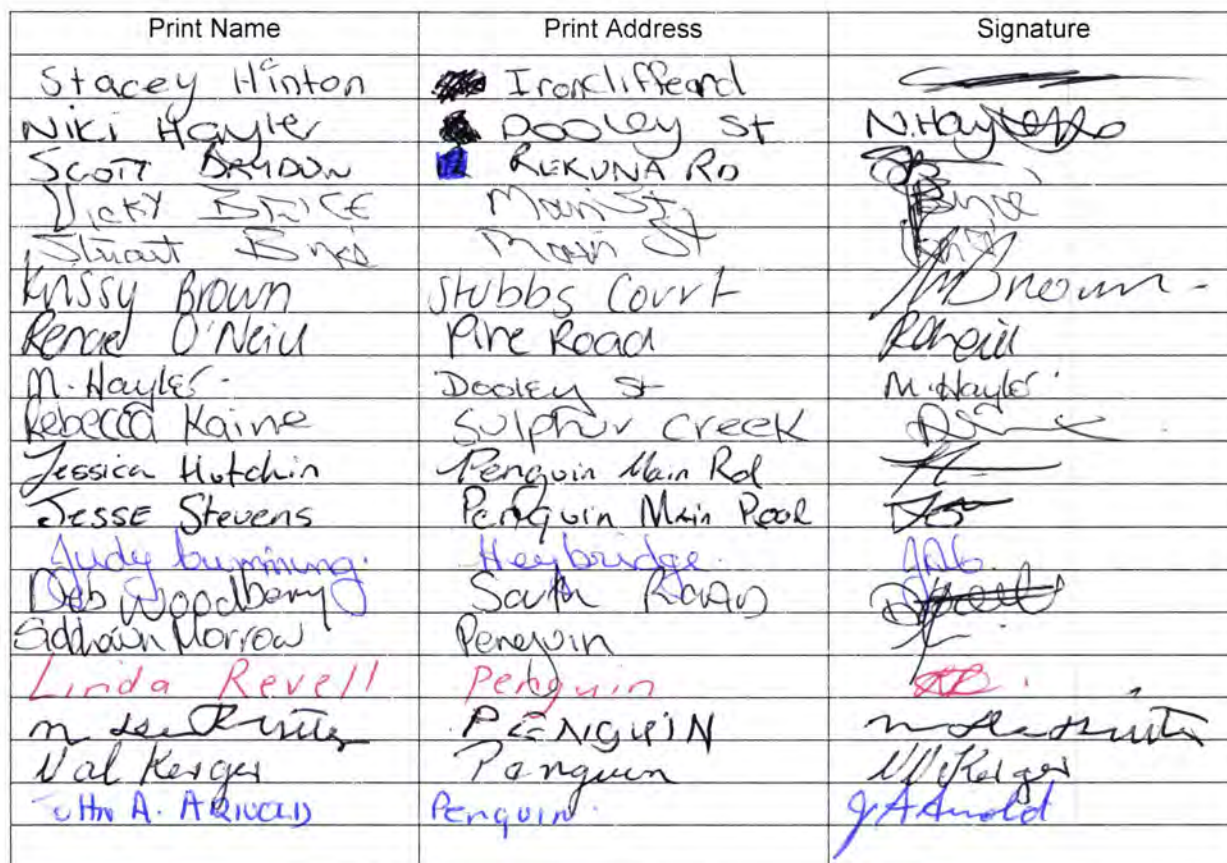 Print Name Print Address Signature
Stacey Hinton Ironcliffe Rd
Niki Hayler Dooley St N. Hayler
SCOTT BRYDON REKUNA RD
VICKY BRICE Main St Brice
Stuart Main St
Krissy Brown Stubbs Court Brown
Renae O'Neill Pine Road ROneill
M. Hayler. Dooley St M. Hayler
Rebecca Kaine Sulphur Creek
Jessica Hutchin Penguin Main Rd
JESSE Stevens Penguin Main Road
Judy bumming. Heybridge.
Deb Woodbery South Road
Siobhain Morrow Penguin
Linda Revell Penguin
m PENGUIN m
Val Kerger Penguin Kerger
A. ARNOLD Penguin. J A Arnold